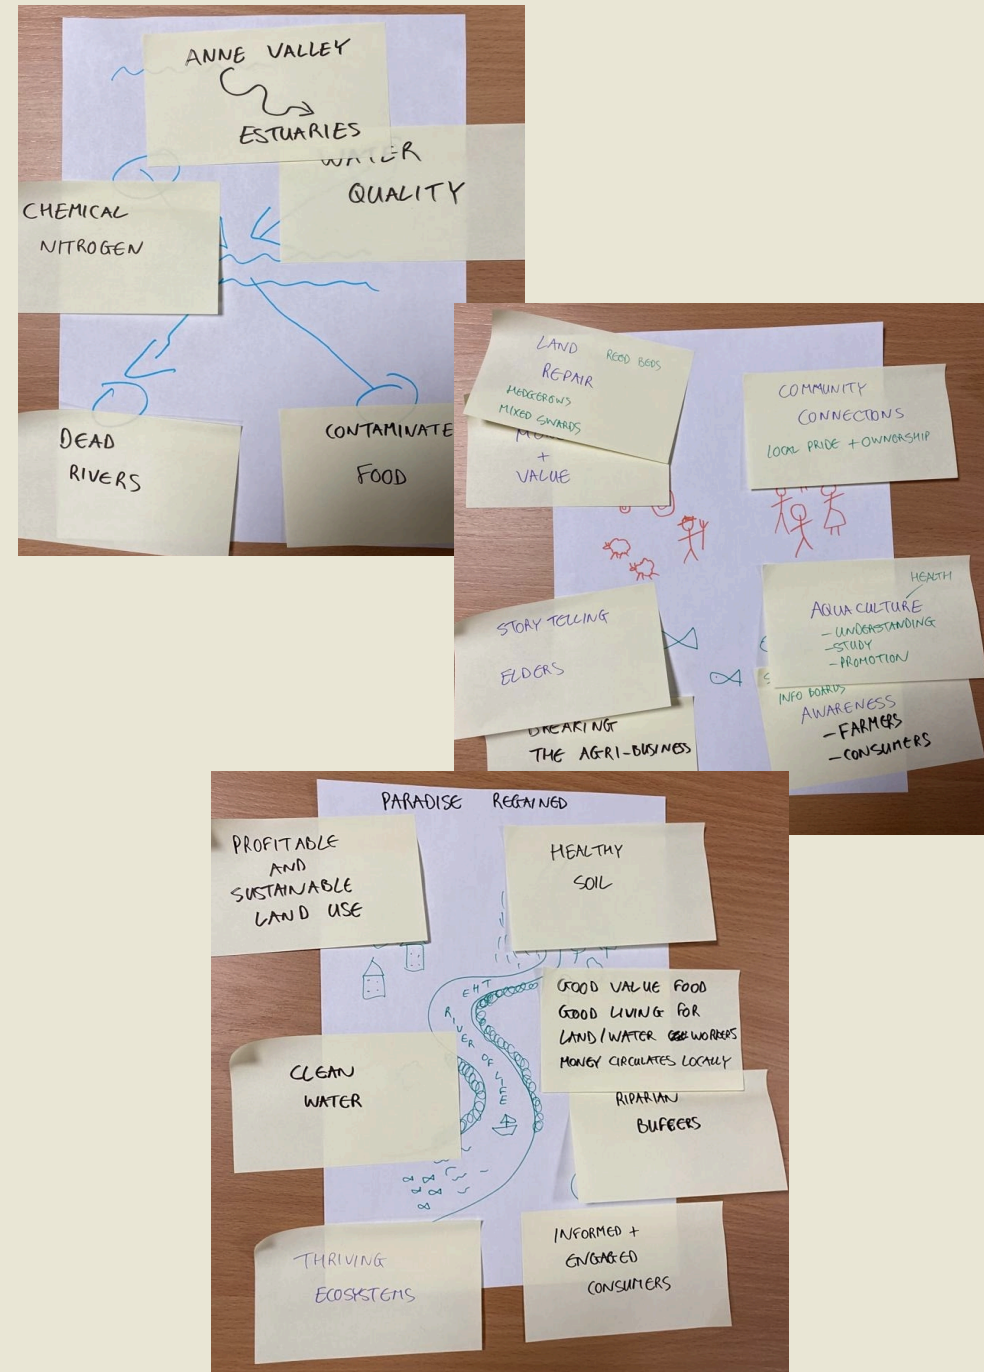 ANNE VALLEY
ESTUARIES
WATER
QUALITY
CHEMICAL
NITROGEN
DEAD
RIVERS
CONTAMINATE
FOOD
LAND
REED BEDS
REPAIR
HEDGEROWS
MIXED SWARDS
+
VALUE
COMMUNITY
CONNECTIONS
LOCAL PRIDE + OWNERSHIP
STORY TELLING
ELDERS
BREAKING
THE AGRI-BUSINESS
HEALTH
AQUACULTURE
- UNDERSTANDING
- STUDY
- PROMOTION
INFO BOARDS
AWARENESS
- FARMERS
- CONSUMERS
PARADISE REGAINED
PROFITABLE
AND
SUSTAINABLE
LAND USE
HEALTHY
SOIL
THE
RIVER
OF
LIFE
GOOD VALUE FOOD
GOOD LIVING FOR
LAND/WATER WORKERS
MONEY CIRCULATES LOCALLY
CLEAN
WATER
RIPARIAN
BUFFERS
THRIVING
ECOSYSTEMS
INFORMED +
ENGAGED
CONSUMERS